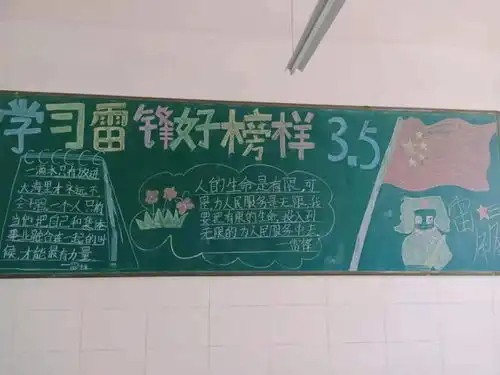 学习雷锋好榜样 3.5
一滴水只有放进
大海里才永远不
会干涸一个人只有
当他把自己和集体
事业融合在一起的时
候,才能最有力量
人的生命是有限,可
是为人民服务是无限,我
要把有限的生命,投入到
无限的为人民服务中去
——雷锋
雷锋